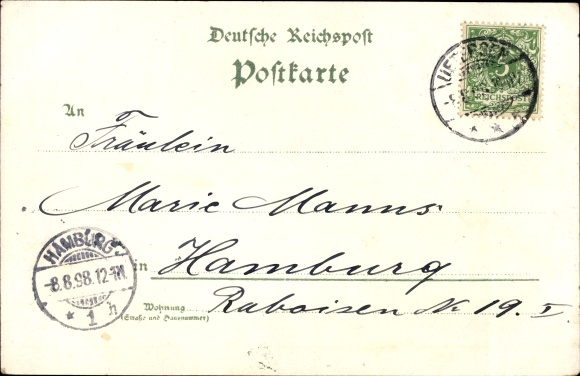 Deutsche Reichspost
Postkarte
UETERSEN
5
REICHSPOST
An
Fräulein
Marie Manns
in Hamburg
HAMBURG
8.8.98.12-1N.
* 1 h
Wohnung
(Straße und Hausnummer)
Raboisen No 19. I